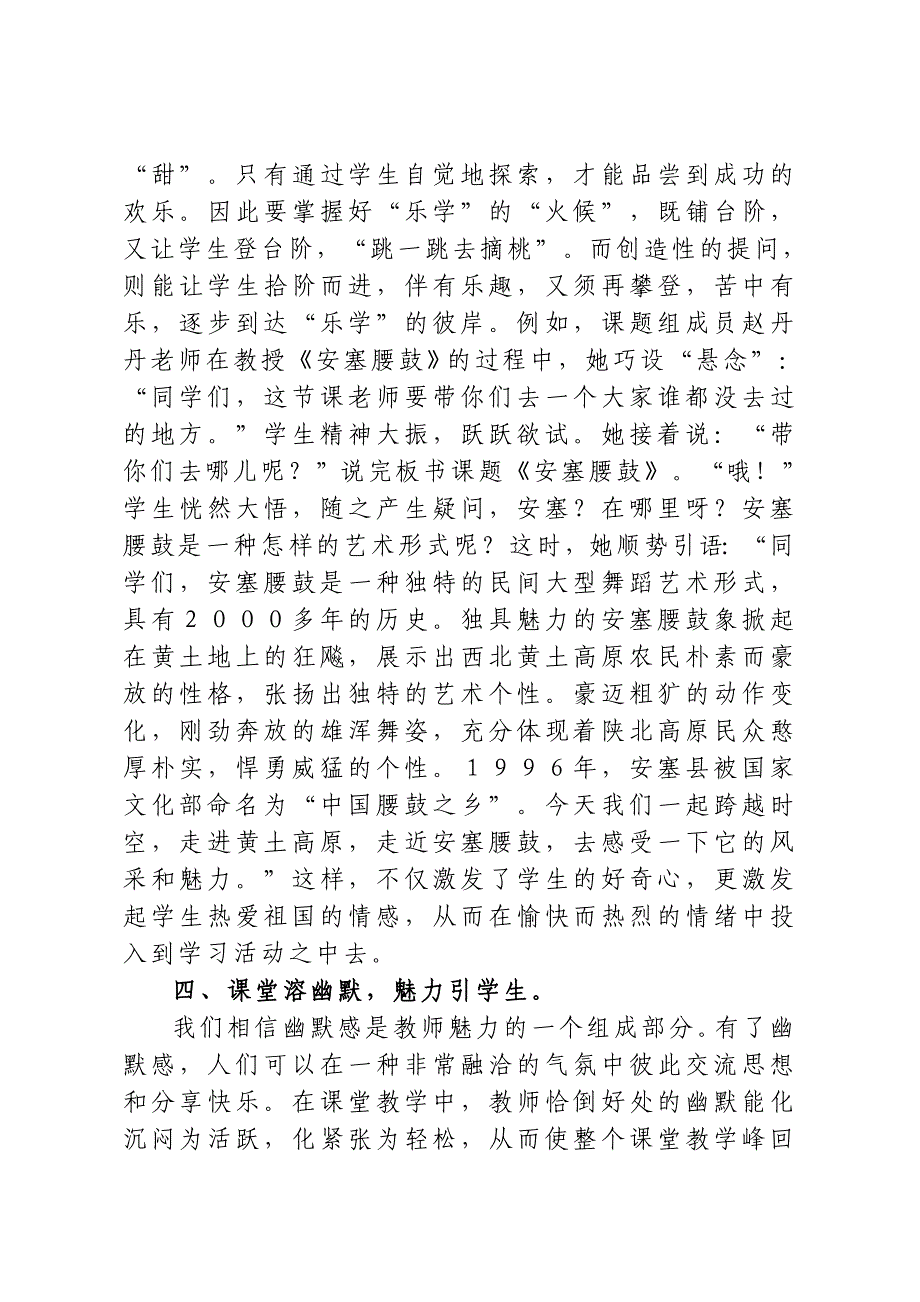 “甜”。只有通过学生自觉地探索，才能品尝到成功的
欢乐。因此要掌握好“乐学”的“火候”，既铺台阶，
又让学生登台阶，“跳一跳去摘桃”。而创造性的提问，
则能让学生拾阶而进，伴有乐趣，又须再攀登，苦中有
乐，逐步到达“乐学”的彼岸。例如，课题组成员赵丹
丹老师在教授《安塞腰鼓》的过程中，她巧设“悬念”：
“同学们，这节课老师要带你们去一个大家谁都没去过
的地方。”学生精神大振，跃跃欲试。她接着说：“带
你们去哪儿呢？”说完板书课题《安塞腰鼓》。“哦！”
学生恍然大悟，随之产生疑问，安塞？在哪里呀？安塞
腰鼓是一种怎样的艺术形式呢？这时，她顺势引语：“同
学们，安塞腰鼓是一种独特的民间大型舞蹈艺术形式，
具有２０００多年的历史。独具魅力的安塞腰鼓象掀起
在黄土地上的狂飚，展示出西北黄土高原农民朴素而豪
放的性格，张扬出独特的艺术个性。豪迈粗犷的动作变
化，刚劲奔放的雄浑舞姿，充分体现着陕北高原民众憨
厚朴实，悍勇威猛的个性。１９９６年，安塞县被国家
文化部命名为“中国腰鼓之乡”。今天我们一起跨越时
空，走进黄土高原，走近安塞腰鼓，去感受一下它的风
采和魅力。”这样，不仅激发了学生的好奇心，更激发
起学生热爱祖国的情感，从而在愉快而热烈的情绪中投
入到学习活动之中去。
四、课堂溶幽默，魅力引学生。
我们相信幽默感是教师魅力的一个组成部分。有了幽
默感，人们可以在一种非常融洽的气氛中彼此交流思想
和分享快乐。在课堂教学中，教师恰到好处的幽默能化
沉闷为活跃，化紧张为轻松，从而使整个课堂教学峰回